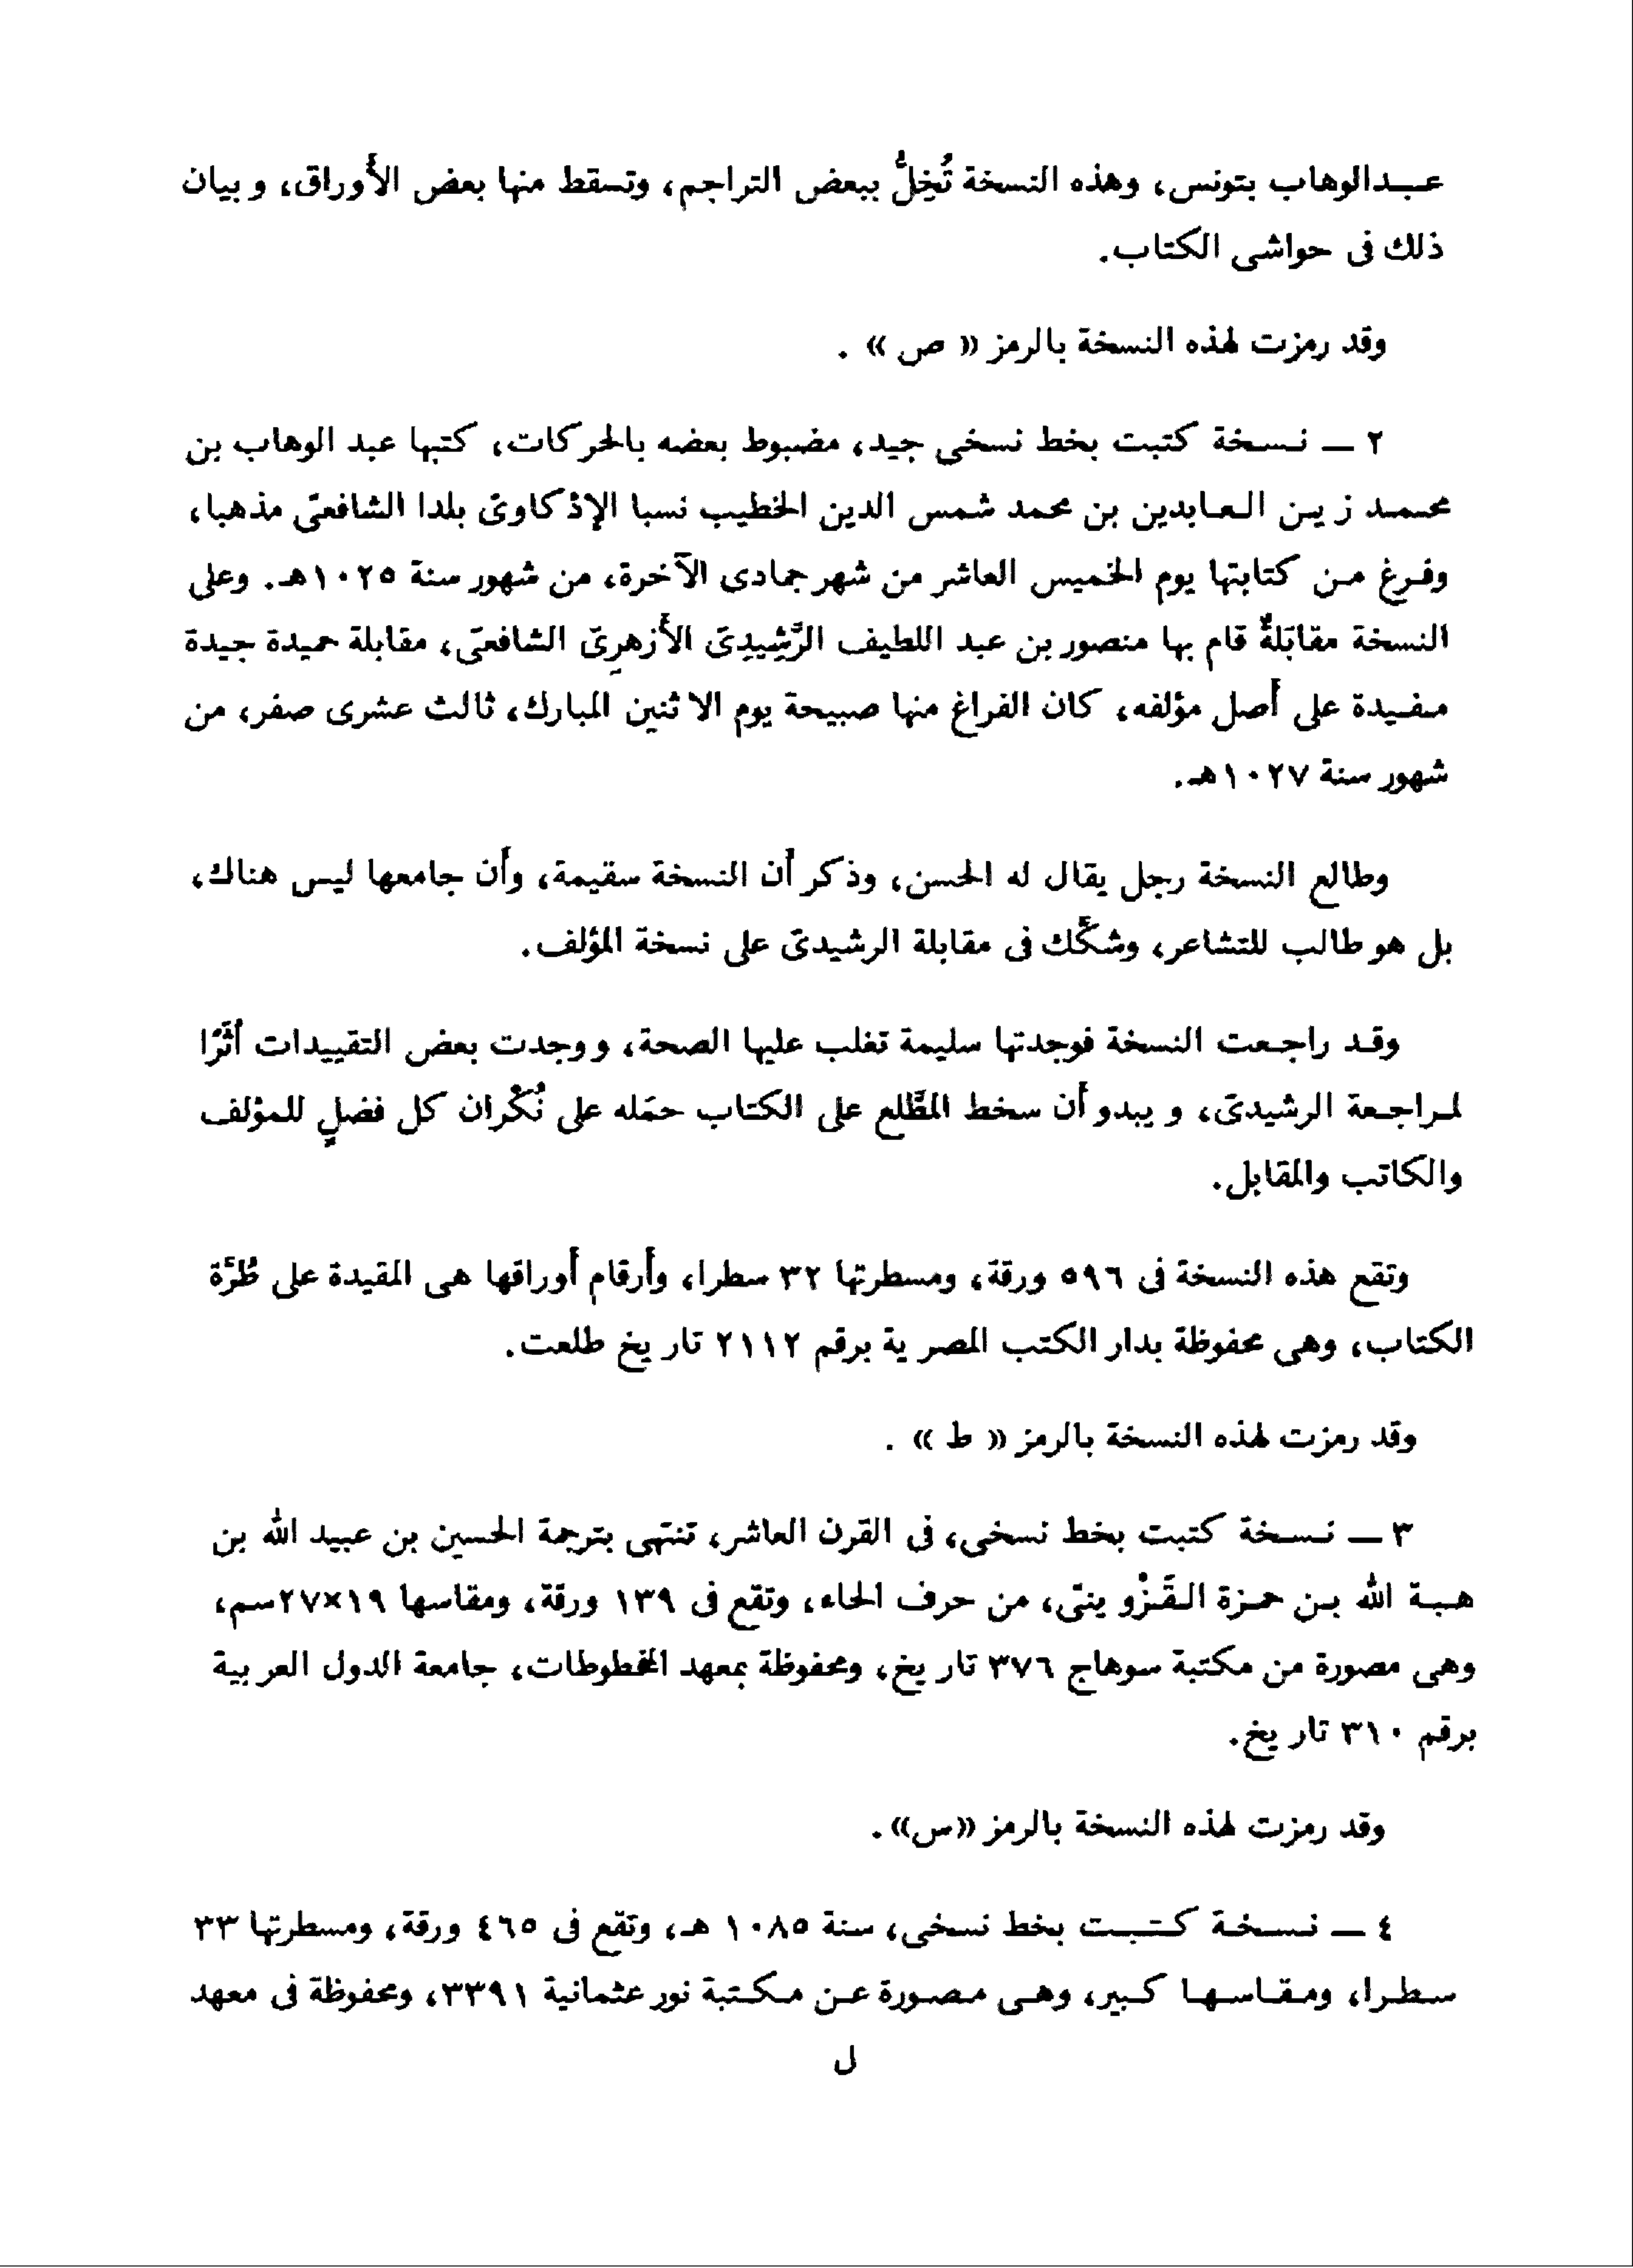 عبدالوهاب بتونس، وهذه النسخة تُخِلُّ ببعض التراجم، وتسقط منها بعض الأوراق، وبيان
ذلك فى حواشى الكتاب.
وقد رمزت لهذه النسخة بالرمز « ص » .
٢ — نسخة كتبت بخط نسخى جيد، مضبوط بعضه بالحركات، كتبها عبد الوهاب بن
محمد زين العابدين بن محمد شمس الدين الخطيب نسبا الإذكاوىّ بلدا الشافعىّ مذهبا،
وفرغ من كتابتها يوم الخميس العاشر من شهر جمادى الآخرة، من شهور سنة ١٠٢٥هـ. وعلى
النسخة مقابَلةٌ قام بها منصور بن عبد اللطيف الرَّشِيدِىّ الأزهرِىّ الشافعىّ، مقابلة حميدة جيدة
مفيدة على أصل مؤلفه، كان الفراغ منها صبيحة يوم الاثنين المبارك، ثالث عشرى صفر، من
شهور سنة ١٠٢٧هـ.
وطالع النسخة رجل يقال له الحسن، وذكر أن النسخة سقيمة، وأن جامعها ليس هناك،
بل هو طالب للتشاعر، وشكَّك فى مقابلة الرشيدىّ على نسخة المؤلف.
وقد راجعت النسخة فوجدتها سليمة تغلب عليها الصحة، ووجدت بعض التقييدات أثَرًا
لمراجعة الرشيدىّ، ويبدو أن سخط المطَّلع على الكتاب حمَله على نُكْران كل فضلٍ للمؤلف
والكاتب والمقابل.
وتقع هذه النسخة فى ٥٩٦ ورقة، ومسطرتها ٣٢ سطرا، وأرقام أوراقها هى المقيدة على طُرَّة
الكتاب، وهى محفوظة بدار الكتب المصرية برقم ٢١١٢ تاريخ طلعت.
وقد رمزت لهذه النسخة بالرمز « ط » .
٣ — نسخة كتبت بخط نسخى، فى القرن العاشر، تنتهى بترجمة الحسين بن عبيد الله بن
هبة الله بن حمزة القَزْوينىّ، من حرف الحاء، وتقع فى ١٣٩ ورقة، ومقاسها ١٩×٢٧سم،
وهى مصورة من مكتبة سوهاج ٣٧٦ تاريخ، ومحفوظة بمعهد المخطوطات، جامعة الدول العربية
برقم ٣١٠ تاريخ.
وقد رمزت لهذه النسخة بالرمز «س».
٤ — نسخة كتبت بخط نسخى، سنة ١٠٨٥ هـ، وتقع فى ٤٦٥ ورقة، ومسطرتها ٣٣
سطرا، ومقاسها كبير، وهى مصورة عن مكتبة نور عثمانية ٣٣٩١، ومحفوظة فى معهد
ل